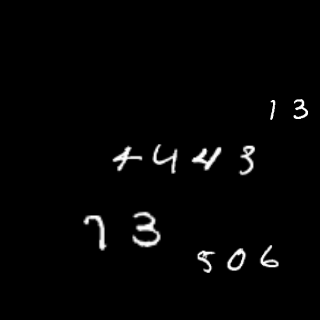 13
4443
73
506